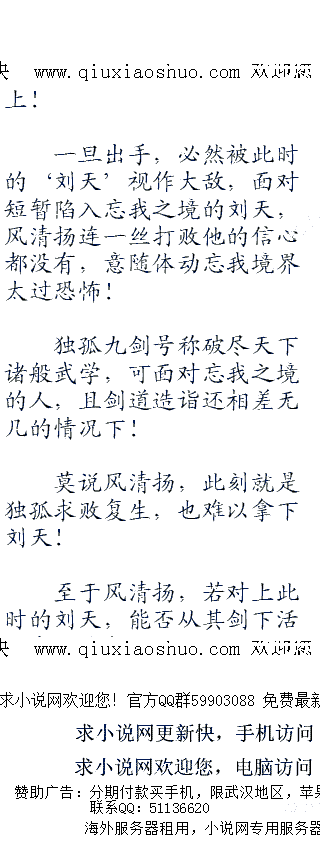 www.qiuxiaoshuo.com 欢迎您
上！
一旦出手，必然被此时
的‘刘天’视作大敌，面对
短暂陷入忘我之境的刘天，
风清扬连一丝打败他的信心
都没有，意随体动忘我境界
太过恐怖！
独孤九剑号称破尽天下
诸般武学，可面对忘我之境
的人，且剑道造诣还相差无
几的情况下！
莫说风清扬，此刻就是
独孤求败复生，也难以拿下
刘天！
至于风清扬，若对上此
时的刘天，能否从其剑下活
www.qiuxiaoshuo.com 欢迎您
求小说网欢迎您！官方QQ群59903088 免费最新
求小说网更新快，手机访问
求小说网欢迎您，电脑访问
赞助广告：分期付款买手机，限武汉地区，苹果
联系QQ：51136620
海外服务器租用，小说网专用服务器